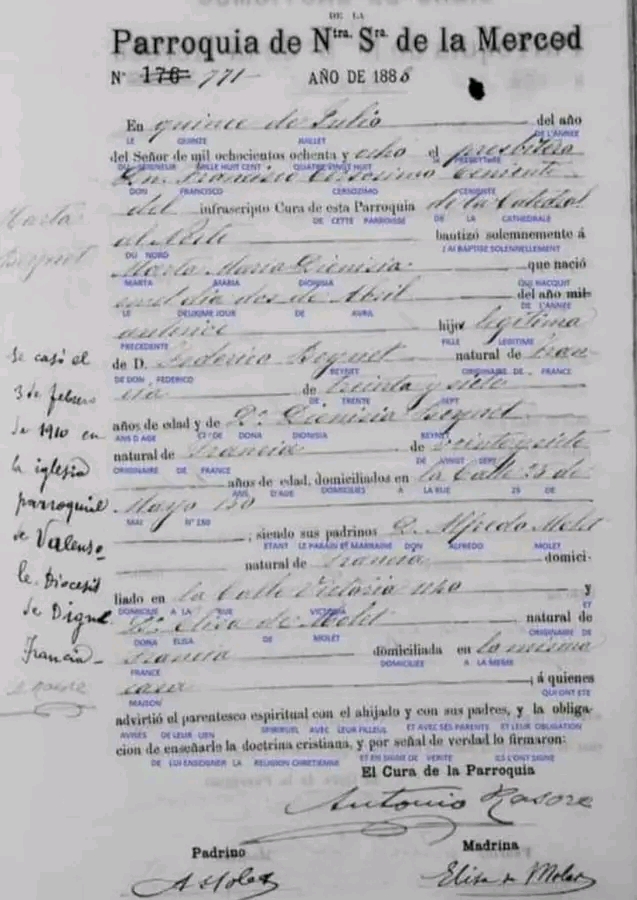 DE LA
Parroquia de Ntra. Sra. de la Merced
N° 176 771 AÑO DE 1888
En quince de Julio del año
LE QUINZE JUILLET DE L'ANNEE
del Señor de mil ochocientos ochenta y ocho el presbítero
DU SEIGNEUR MILLE HUIT CENT QUATRE VINGT HUIT PRESBYTERE
Dn. Francisco Cersosimo teniente
DON FRANCISCO CERSOZIMO CENIENTE
del infrascripto Cura de esta Parroquia de la Catedral
DE CETTE PARROISSE DE LA CATHEDRALE
al Norte bautizó solemnemente á
DU NORD J'AI BAPTISE SOLENNELLEMENT
Marta Maria Dionisia que nació
MARTA MARIA DIONISIA QUI NACQUIT
en el dia dos de Abril del año mil
LE DEUXIEME JOUR DE AVRIL DE L'ANNEE
hijo legítima
PRECEDENTE FILLE LEGITIME
de D. Federico Beynet natural de Fran
DE DON FEDERICO BEYNET ORIGINAIRE DE FRANCE
cia de treinta y siete
DE TRENTE SEPT
años de edad y de Da. Dionisia Beynet
ANS D AGE ET DE DONA DIONISIA BEYNET
natural de Francia de veinte y siete
ORIGINAIRE DE FRANCE DE VINGT SEPT
años de edad, domiciliados en la Calle 25 de
ANS D'AGE DOMICILIES A LA RUE 25 DE
Mayo 150
MAI N° 150
; siendo sus padrinos D. Alfredo Molet
ETANT LE PARAIN ET MARRAINE DON ALFREDO MOLET
natural de Francia domici-
liado en la Calle Victoria y
DOMICILIE A LA RUE VICTORIA ET
Da. Elisa de Molet natural de
DONA ELISA DE MOLET ORIGINAIRE DE
Francia domiciliada en la misma
FRANCE DOMICILIEE A LA MEME
casa ; á quienes
MAISON QUI ONT ETE
advirtió el parentesco espiritual con el ahijado y con sus padres, y la obliga-
AVISES DE LEUR LIEN SPIRITUEL AVEC LEUR FILLEUL ET AVEC SES PARENTS ET LEUR OBLIGATION
cion de enseñarle la doctrina cristiana, y por señal de verdad lo firmaron:
DE LUI ENSEIGNER LA RELIGION CHRETIENNE ET EN SIGNE DE VERITE ILS L'ONT SIGNE
El Cura de la Parroquia
Antonio Rasore
Padrino Madrina
A Molet Elisa de Molet
Marta
Beynet
Se casó el
3 de febrero
de 1910 en
la iglesia
parroquial
de Valenso-
le. Diocesis
de Digne
Francia-
Rasore